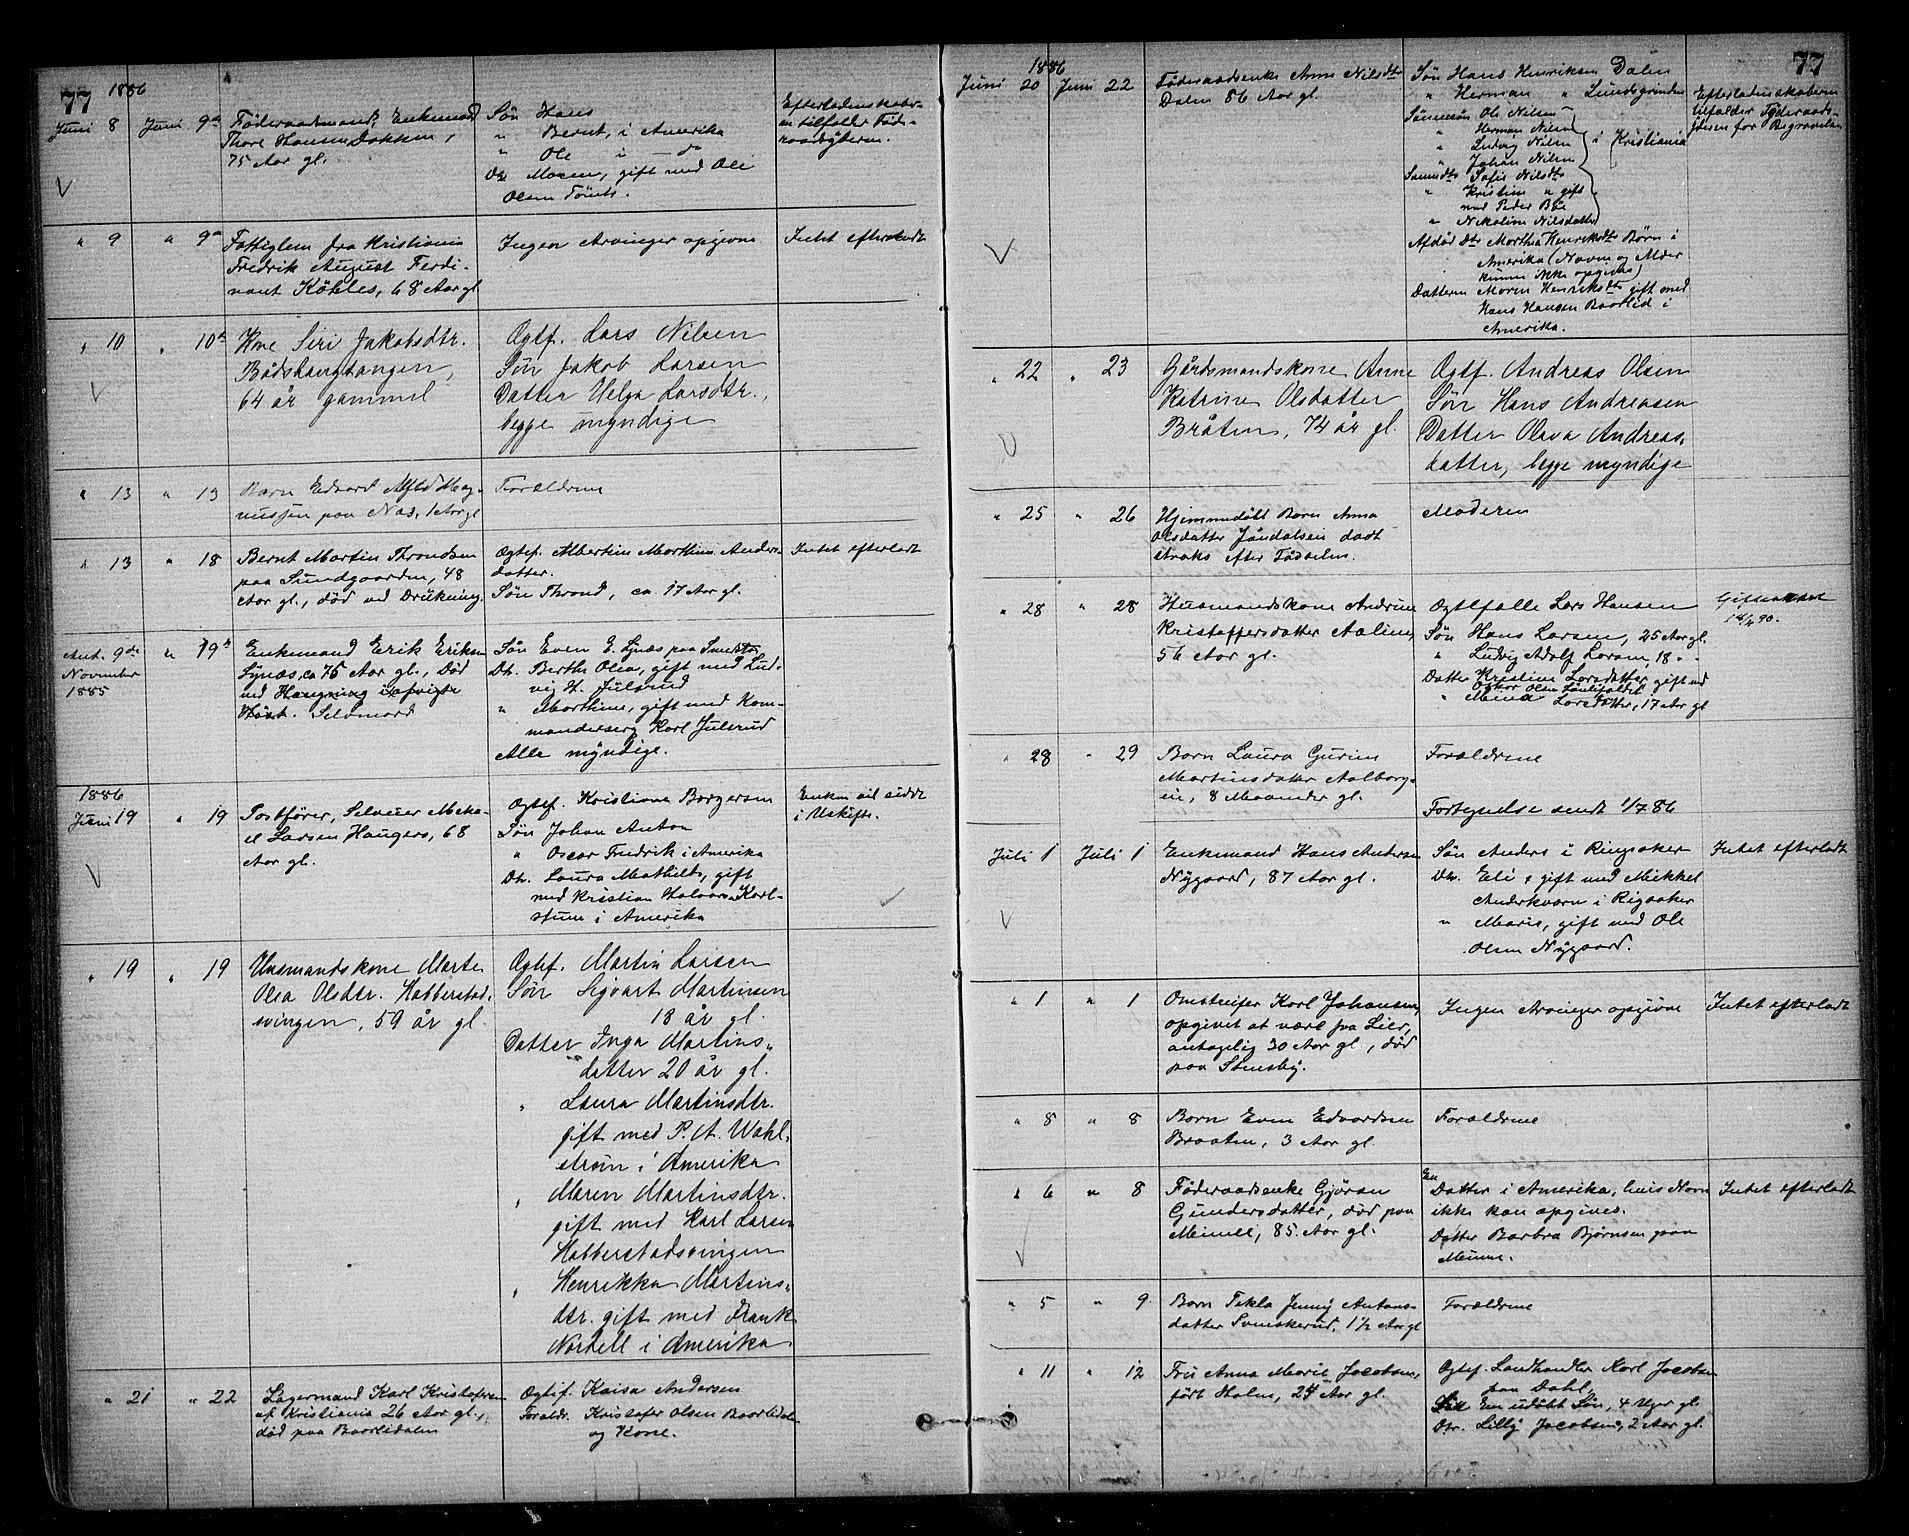 77 1886
Juni 8 Juni 9de Føderaadsmand, Enkemand
Thore Hansen Dokken,
75 Aar gl.
Søn Hans
" Bernt, i Amerika
" Ole i do
Dtr Maren, gift med Ole
Olsen
Efterladenskaber-
en tilfalder Føde-
raadsyderen.
" 9 " 9de Fattiglem fra Kristiania
Fredrik August Ferdi-
nant Köhler, 68 Aar gl
Ingen Arvinger opgivne
Intet efterladt
" 10 " 10de Kone Siri Jakobsdtr.
Bådshaugtangen,
64 år gammel
Ægtef. Lars Nilsen
Søn Jakob Larsen
Datter Helga Larsdtr.,
begge myndige
" 13 " 13 Barn Edvard Alfred Mag-
nussen paa Næs, 1 Aar gl
Forældrene
" 13 " 18 Bernt Martin Throndsen
paa Sundgaarden, 48
Aar gl., død ved Drukning.
Ægtef. Albertine Marthine Anders-
datter.
Søn Thrond, ca. 17 Aar gl.
Intet efterladt
Ant. 9de
November
1885
" 19de Enkemand Erik Eriksen
Lynæs, ca 75 Aar gl., Død
ved Hængning i afvigte
Høst. Selvmord
Søn Even E. Lynæs paa
Dt. Berthe Olea, gift med Lud-
vig H. Julsrud
" Marthine, gift med Kom-
manderserg Karl Julsrud
Alle myndige.
1886
Juni 19 " 19 Postfører, Selveier Mika-
el Larsen Haugers, 68
Aar gl.
Ægtef. Kristiane Borgersen
Søn Johan Anton
" Oscar Fredrik i Amerika
Dtr. Laura Mathilde, gift
med Kristian Halvorsen Karl-
stuen i Amerika
Enken vil sidde
i Uskifte.
" 19 " 19 Husmandskone Marte
Olea Olsdtr. Habberstad-
svingen, 59 år gl.
Ægtef. Martin Larsen
Søn Sigvart Martinsen
18 år gl.
Datter Inga Martins-
datter 20 år gl.
" Laura Martinsdtr.
gift med P. A. Wahl-
strøm i Amerika
" Maren Martinsdtr.
gift med Karl Larsen
Habberstadsvingen
" Henrikka Martins-
dtr. gift med Frank
Nordell i Amerika
" 21 " 22 Lagermand Karl Kristofersen
af Kristiania 26 Aar gl.,
død paa Baarlidalen
Ægtef. Kaisa Andersen
Foraldr. Kristofer Olsen Baarlidalen
og Kone.
77
1886
Juni 20 Juni 22 Føderaadsenke Anne Nilsdtr
Dalen 86 Aar gl.
Søn Hans Henriksen Dalen
" Herman " Lundsgrinden
Sønnesøn Ole Nilsen
" Herman Nilsen
" Ludvig Nilsen
" Johan Nilsen
i Kristiania
Sønnedtr Sofie Nilsdtr
" Kristine " gift
med Peder Bøe
" Nikoline Nilsdatter
Afdød Dtr Marthe Henriksdtr Børn i
Amerika (Navn og Alder
kunne ikke opgives)
Datteren Maren Henriksdtr gift med
Hans Hansen Baarlid i
Amerika.
Efterladenskaberne
tilfalder Føderaads-
yderen for Begravelsen
" 22 " 23 Gårdsmandskone Anne
Katrine Olsdatter
Bråten, 74 år gl.
Ægtf. Andreas Olsen
Søn Hans Andreasen
Datter Olava Andreas-
datter, begge myndige
" 25 " 26 Hjemmedøbt Barn Anna
Olsdatter Jøndalseie dødt
straks efter Fødselen.
Moderen
" 28 " 28 Husmandskone Andrine
Kristoffersdatter Aaliene,
56 Aar gl.
Ægtefelle Lars Hansen
Søn Hans Larsen, 25 Aar gl.
" Ludvig Adolf Larsen, 18 " "
Datter Kristine Larsdatter, gift med
Oskar Olsen
" Mina Larsdatter, 17 Aar gl
Giftes
90.
" 28 " 29 Barn Laura Gurine
Martinsdatter Aalborg-
eie, 8 Maaneder gl.
Forældrene
Fortegnelse sendt 1/7 86
Juli 1 Juli 1 Enkemand Hans Andersen
Nygaard, 87 Aar gl.
Søn Anders i Ringsaker
Dtr. Eli, gift med Mikkel
Anderkværn i Rigsaker
" Marie, gift med Ole
Olsen Nygaard.
Intet efterladt
" 1 " 1 Omstreifer Karl Johansen,
opgivet at være fra Lier,
antagelig 30 Aar gl., død
paa Stensby.
Ingen Arvinger opgivne
Intet efterladt
" 8 " 8 Barn Even Edvardsen
Braaten, 3 Aar gl
Forældrene
" 6 " 8 Føderaadsenke Gjøran
Gundersdatter, død paa
Minne, 85 Aar gl.
En
Datter i Amerika, hvis Navn
ikke kan opgives.
Datter Barbra Bjørnsen paa
Minne.
Intet efterladt
" 5 " 9 Barn Tekla Jenny Antons-
datter Svenskerud, 1 1/2 Aar gl
Forældrene
" 11 " 12 Fru Anna Marie Jacobsen,
født Holm, 24 Aar gl.
Ægtef. Landhandler Karl Jacobsen
paa Dahl,
En udøbt Søn, 4 Uger gl
Dtr. Lilly Jacobsen, 2 Aar gl.